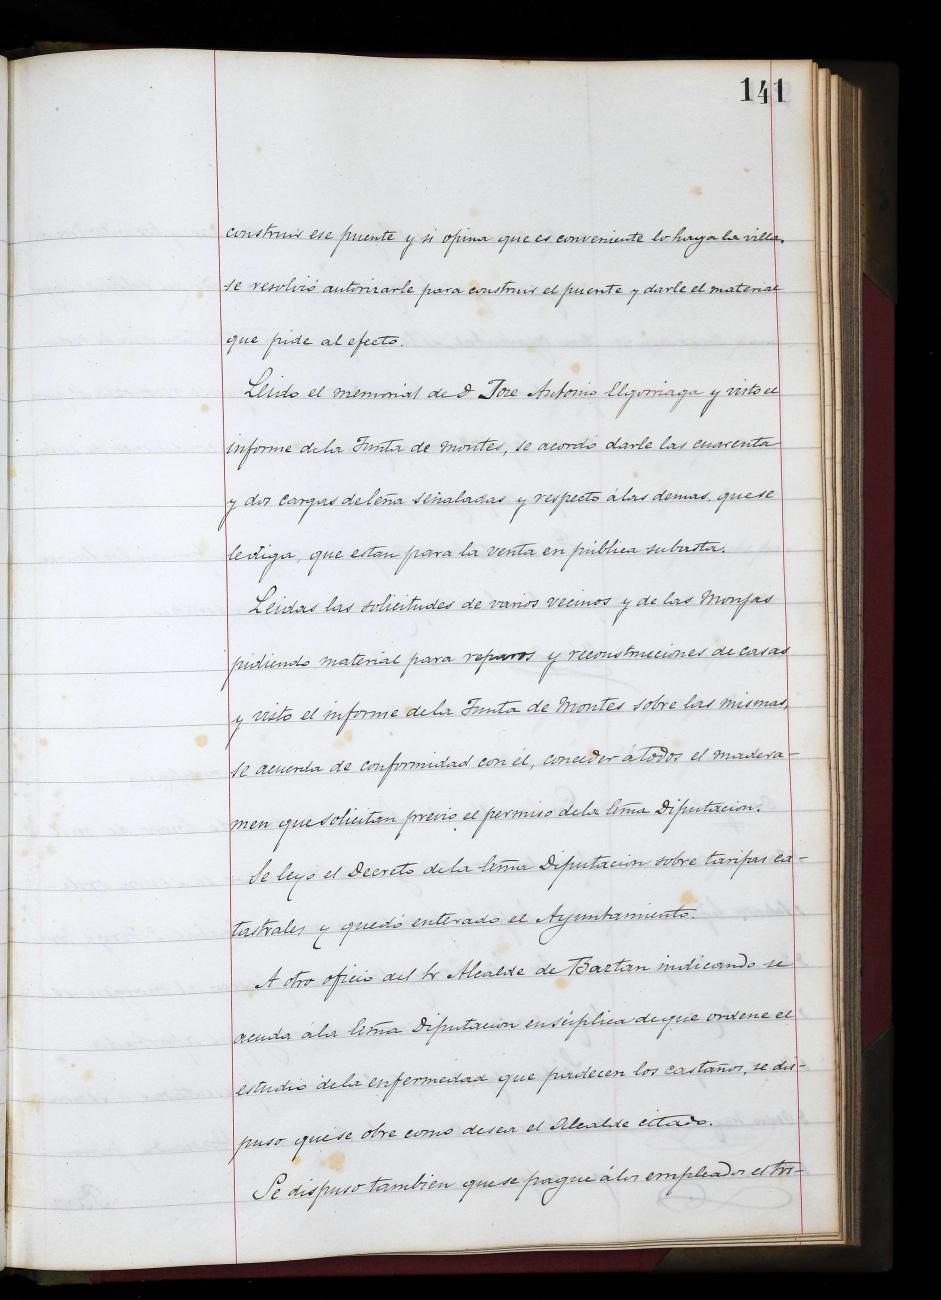 141
construir ese puente y si opina que es conveniente lo haga la villa,
se resolvió autorizarle para construir el puente y darle el material
que pide al efecto.
Leido el memorial de D Jose Antonio Elgorriaga y visto el
informe de la Junta de Montes, se acordó darle las cuarenta
y dos cargas de leña señaladas y respecto á las demas, que se
le diga, que estan para la venta en pública subasta.
Leidas las solicitudes de varios vecinos y de las Monjas
pidiendo material para reparos y reconstrucciones de casas
y visto el informe de la Junta de Montes sobre las mismas,
se acuerda de conformidad con él, conceder á todos el madera-
men que solicitan previo el permiso de la Exma Diputacion.
Se leyó el Decreto de la Exma Diputacion sobre tarifas ca-
tastrales y quedó enterado el Ayuntamiento.
A otro oficio del Sr Alcalde de Baztan indicando se
acuda á la Exma Diputacion en súplica de que ordene el
estudio de la enfermedad que padecen los castaños, se dis-
puso que se obre como desea el Alcalde citado.
Se dispuso tambien que se pague á los empleados el tri-